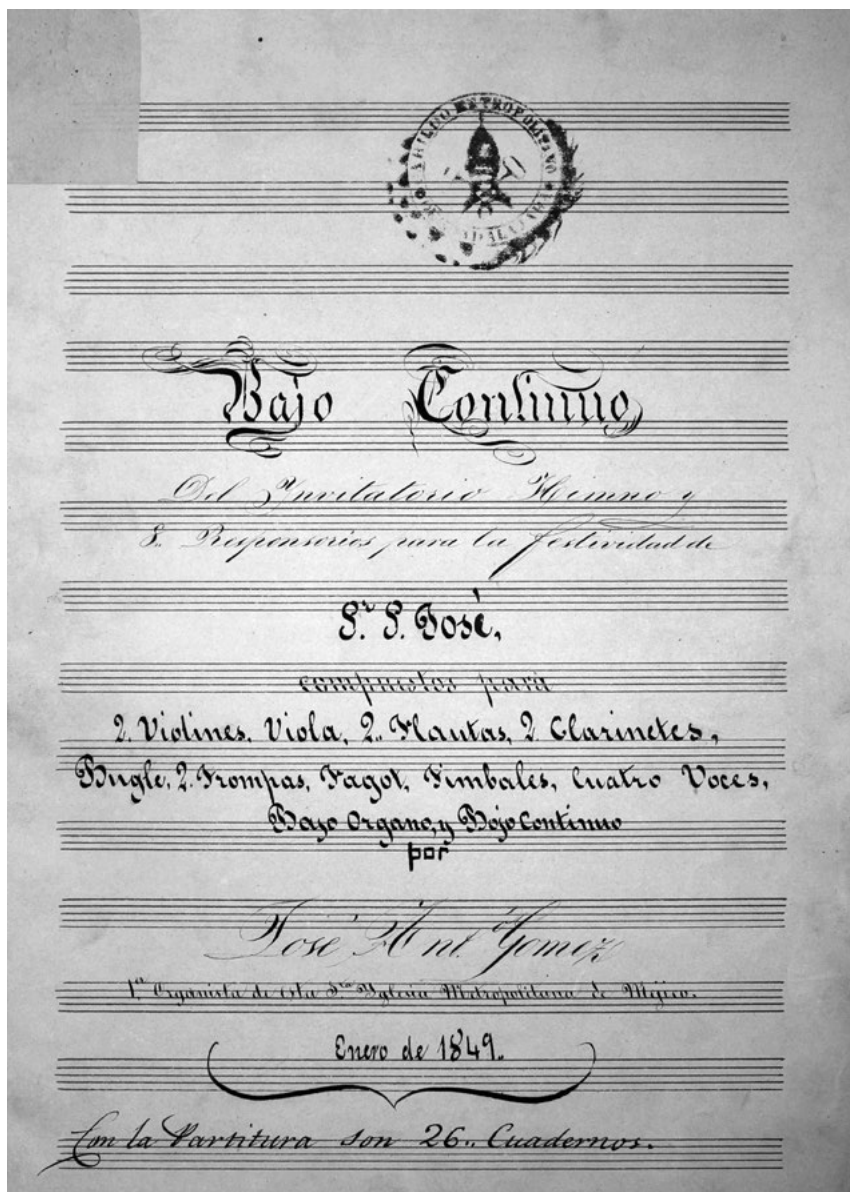 CABILDO METROPOLITANO
Bajo Continuo
Del Invitatorio Himno y
8.. Responsorios para la festividad de
Sr. S. José,
compuestos para
2. Violines, Viola, 2.. Flautas, 2 Clarinetes,
Bugle, 2. Trompas, Fagot, Timbales, Cuatro Voces,
Bajo Organo, y Bajo Continuo
por
José Ant. Gomez
1er. Organista de esta Sta Yglesia Metropolitana de Mejico.
Enero de 1849..
Con la Partitura son 26.. Cuadernos.